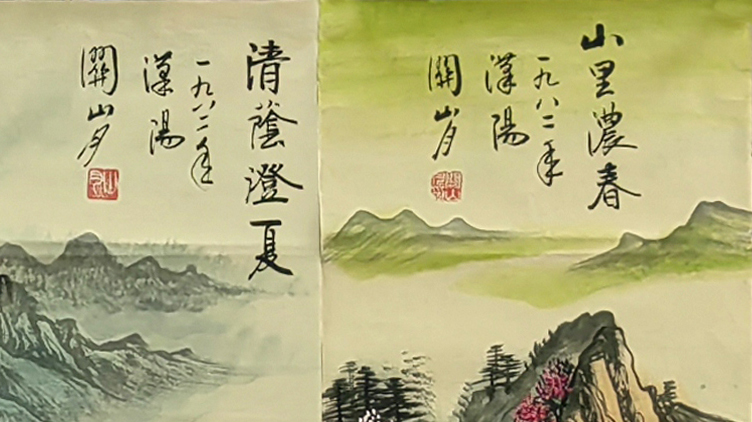 山里濃春
一九八二年
漢陽
關山月
清蔭澄夏
一九八二年
漢陽
關山月